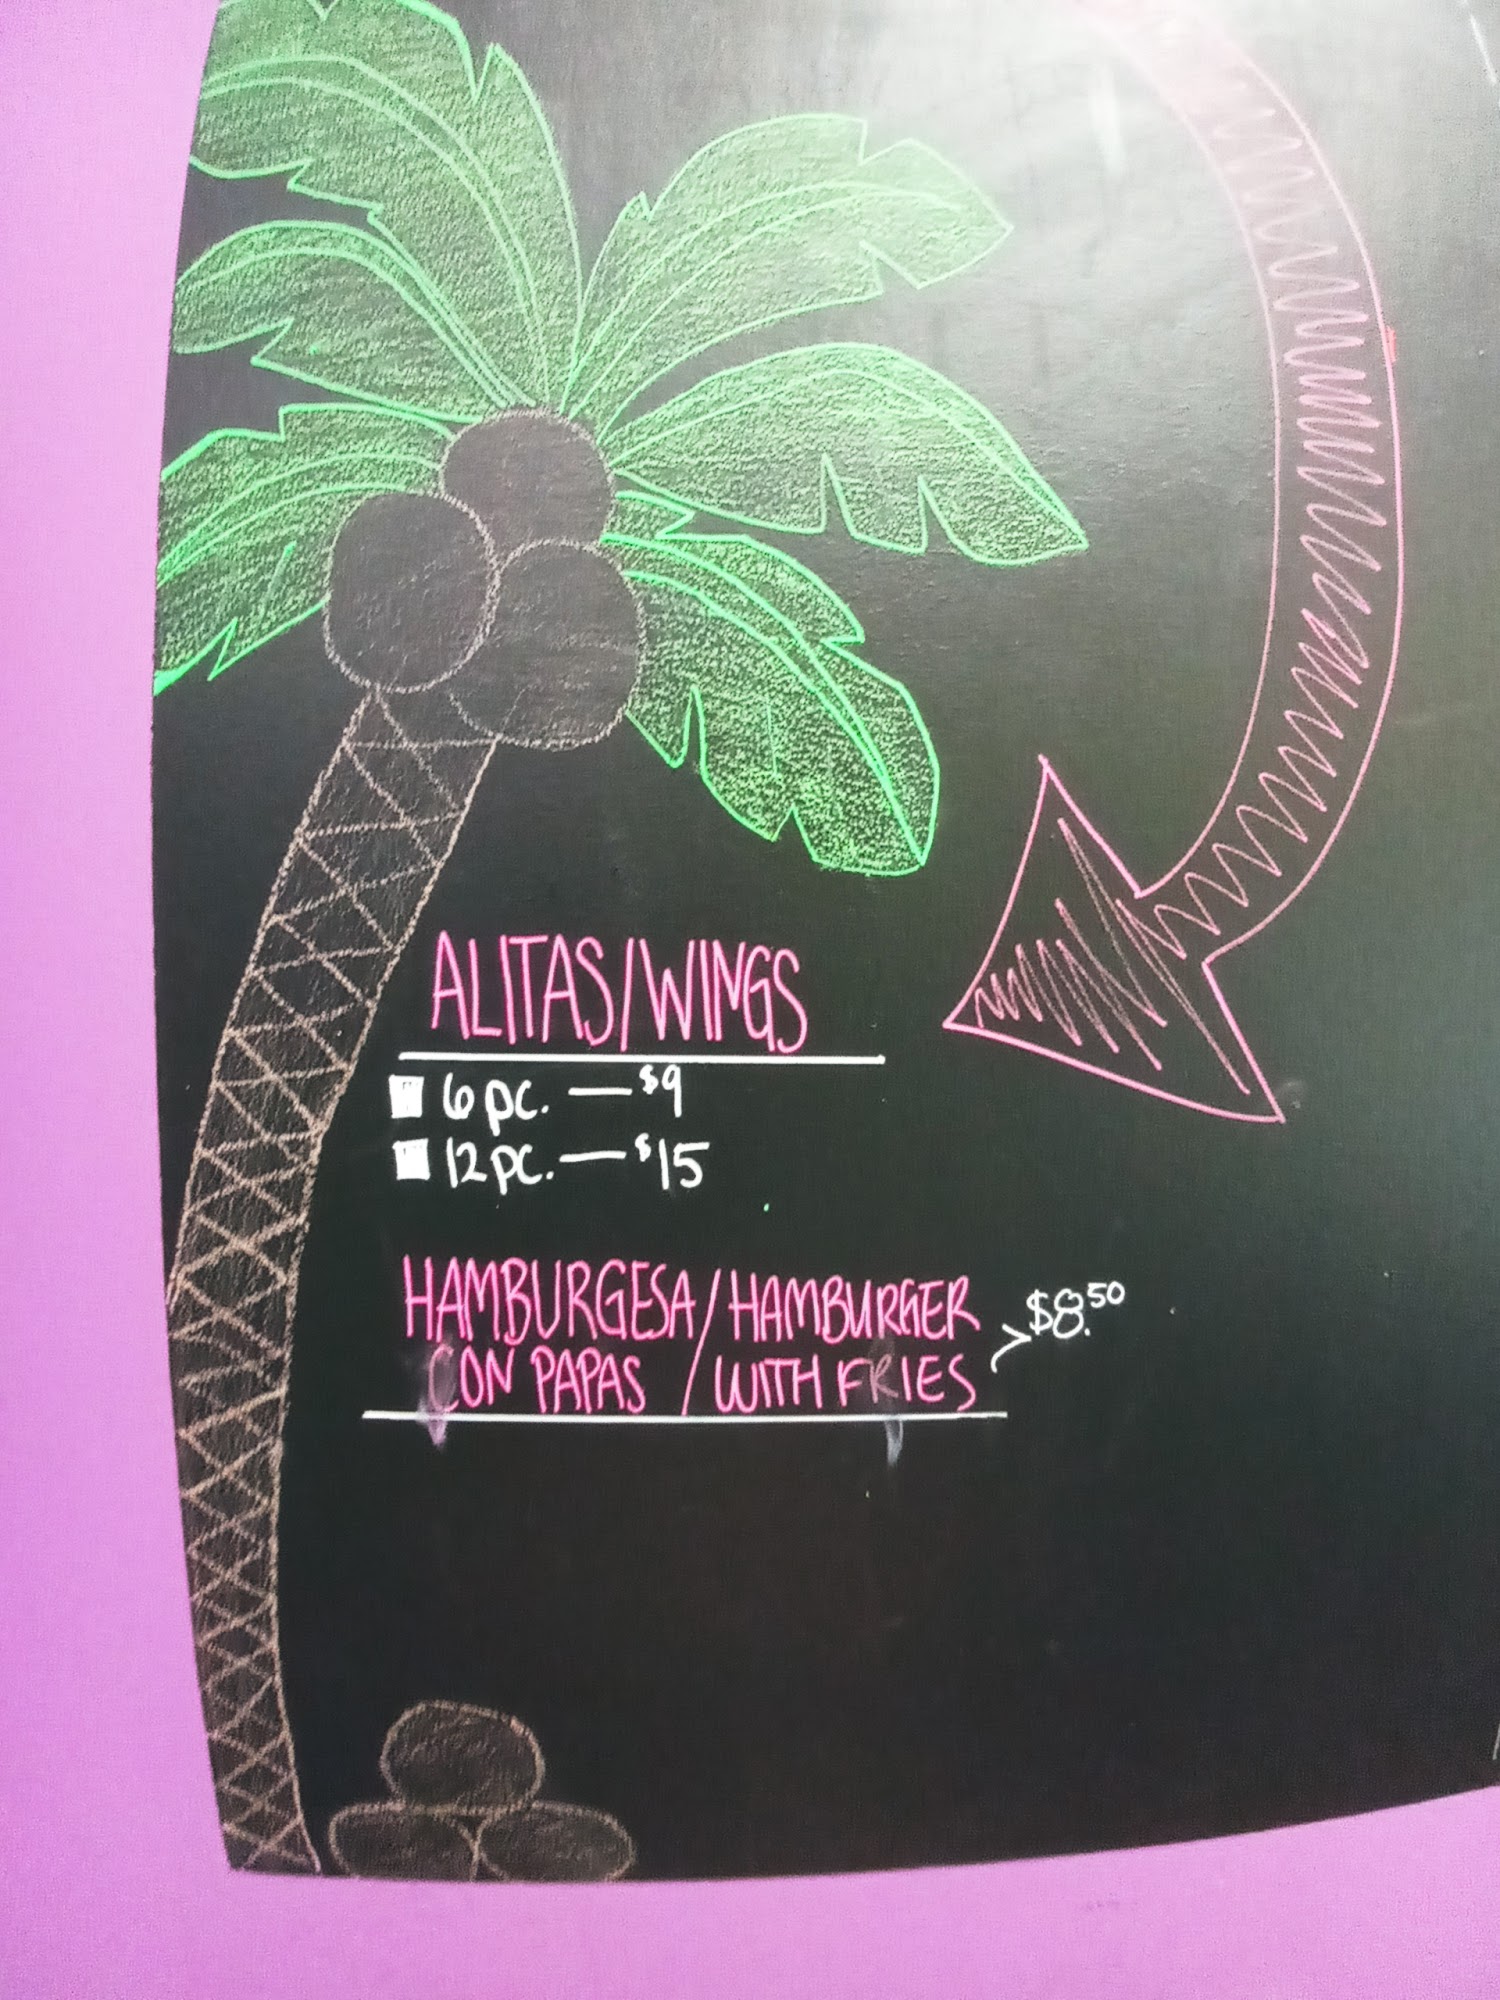 ALITAS/WINGS
6 pc. — $9
12 pc. — $15
HAMBURGESA/HAMBURGER
CON PAPAS / WITH FRIES > $8.50